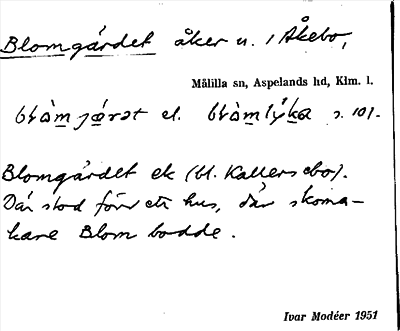 Blomgärdet åker u. / Åkebo,
Målilla sn, Aspelands hd, Klm. l.
el. s. 101.
Blomgärdet ek (t. Kallersebo).
Där stod förr ett hus, där skoma-
kare Blom bodde.
Ivar Modéer 1951